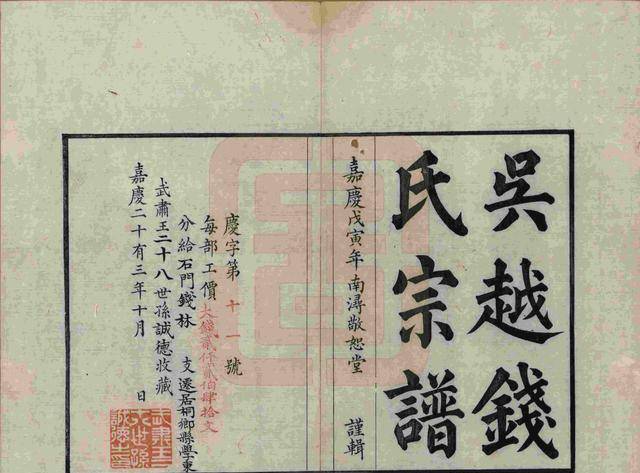 吳越錢
氏宗譜
嘉慶戊寅年南潯敬恕堂 謹輯
慶字第十一號
每部工價大錢貳仟貳伯肆拾文
分給石門錢林 支遷居桐鄉縣學東
武肅王二十八世孫誠德收藏
嘉慶二十有三年十月 日
武肅王二
十八世孫
誠德之章